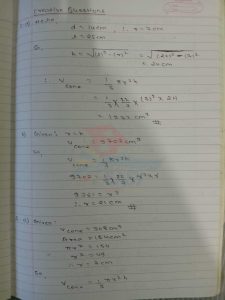 Creative Questions
1. a) Here,
d = 14cm, ∴ r = 7cm
l = 25cm
So,
h = √(l)² - (r)² = √(25)² - (7)²
= 24 cm
∴ V cone = 1/3 πr²h
= 1/3 × 22/7 × (7)² × 24
= 1232 cm³
#
b) Given: r = h
V cone = 9702 cm³
So,
V cone = 1/3 πr²h
9702 = 1/3 × 22/7 × r² × r
9261 = r³
∴ r = 21 cm
#
2. a) Given:
V cone = 308 cm³
Area = 154 cm²
πr² = 154
r² = 49
∴ r = 7 cm
So,
V cone = 1/3 πr²h